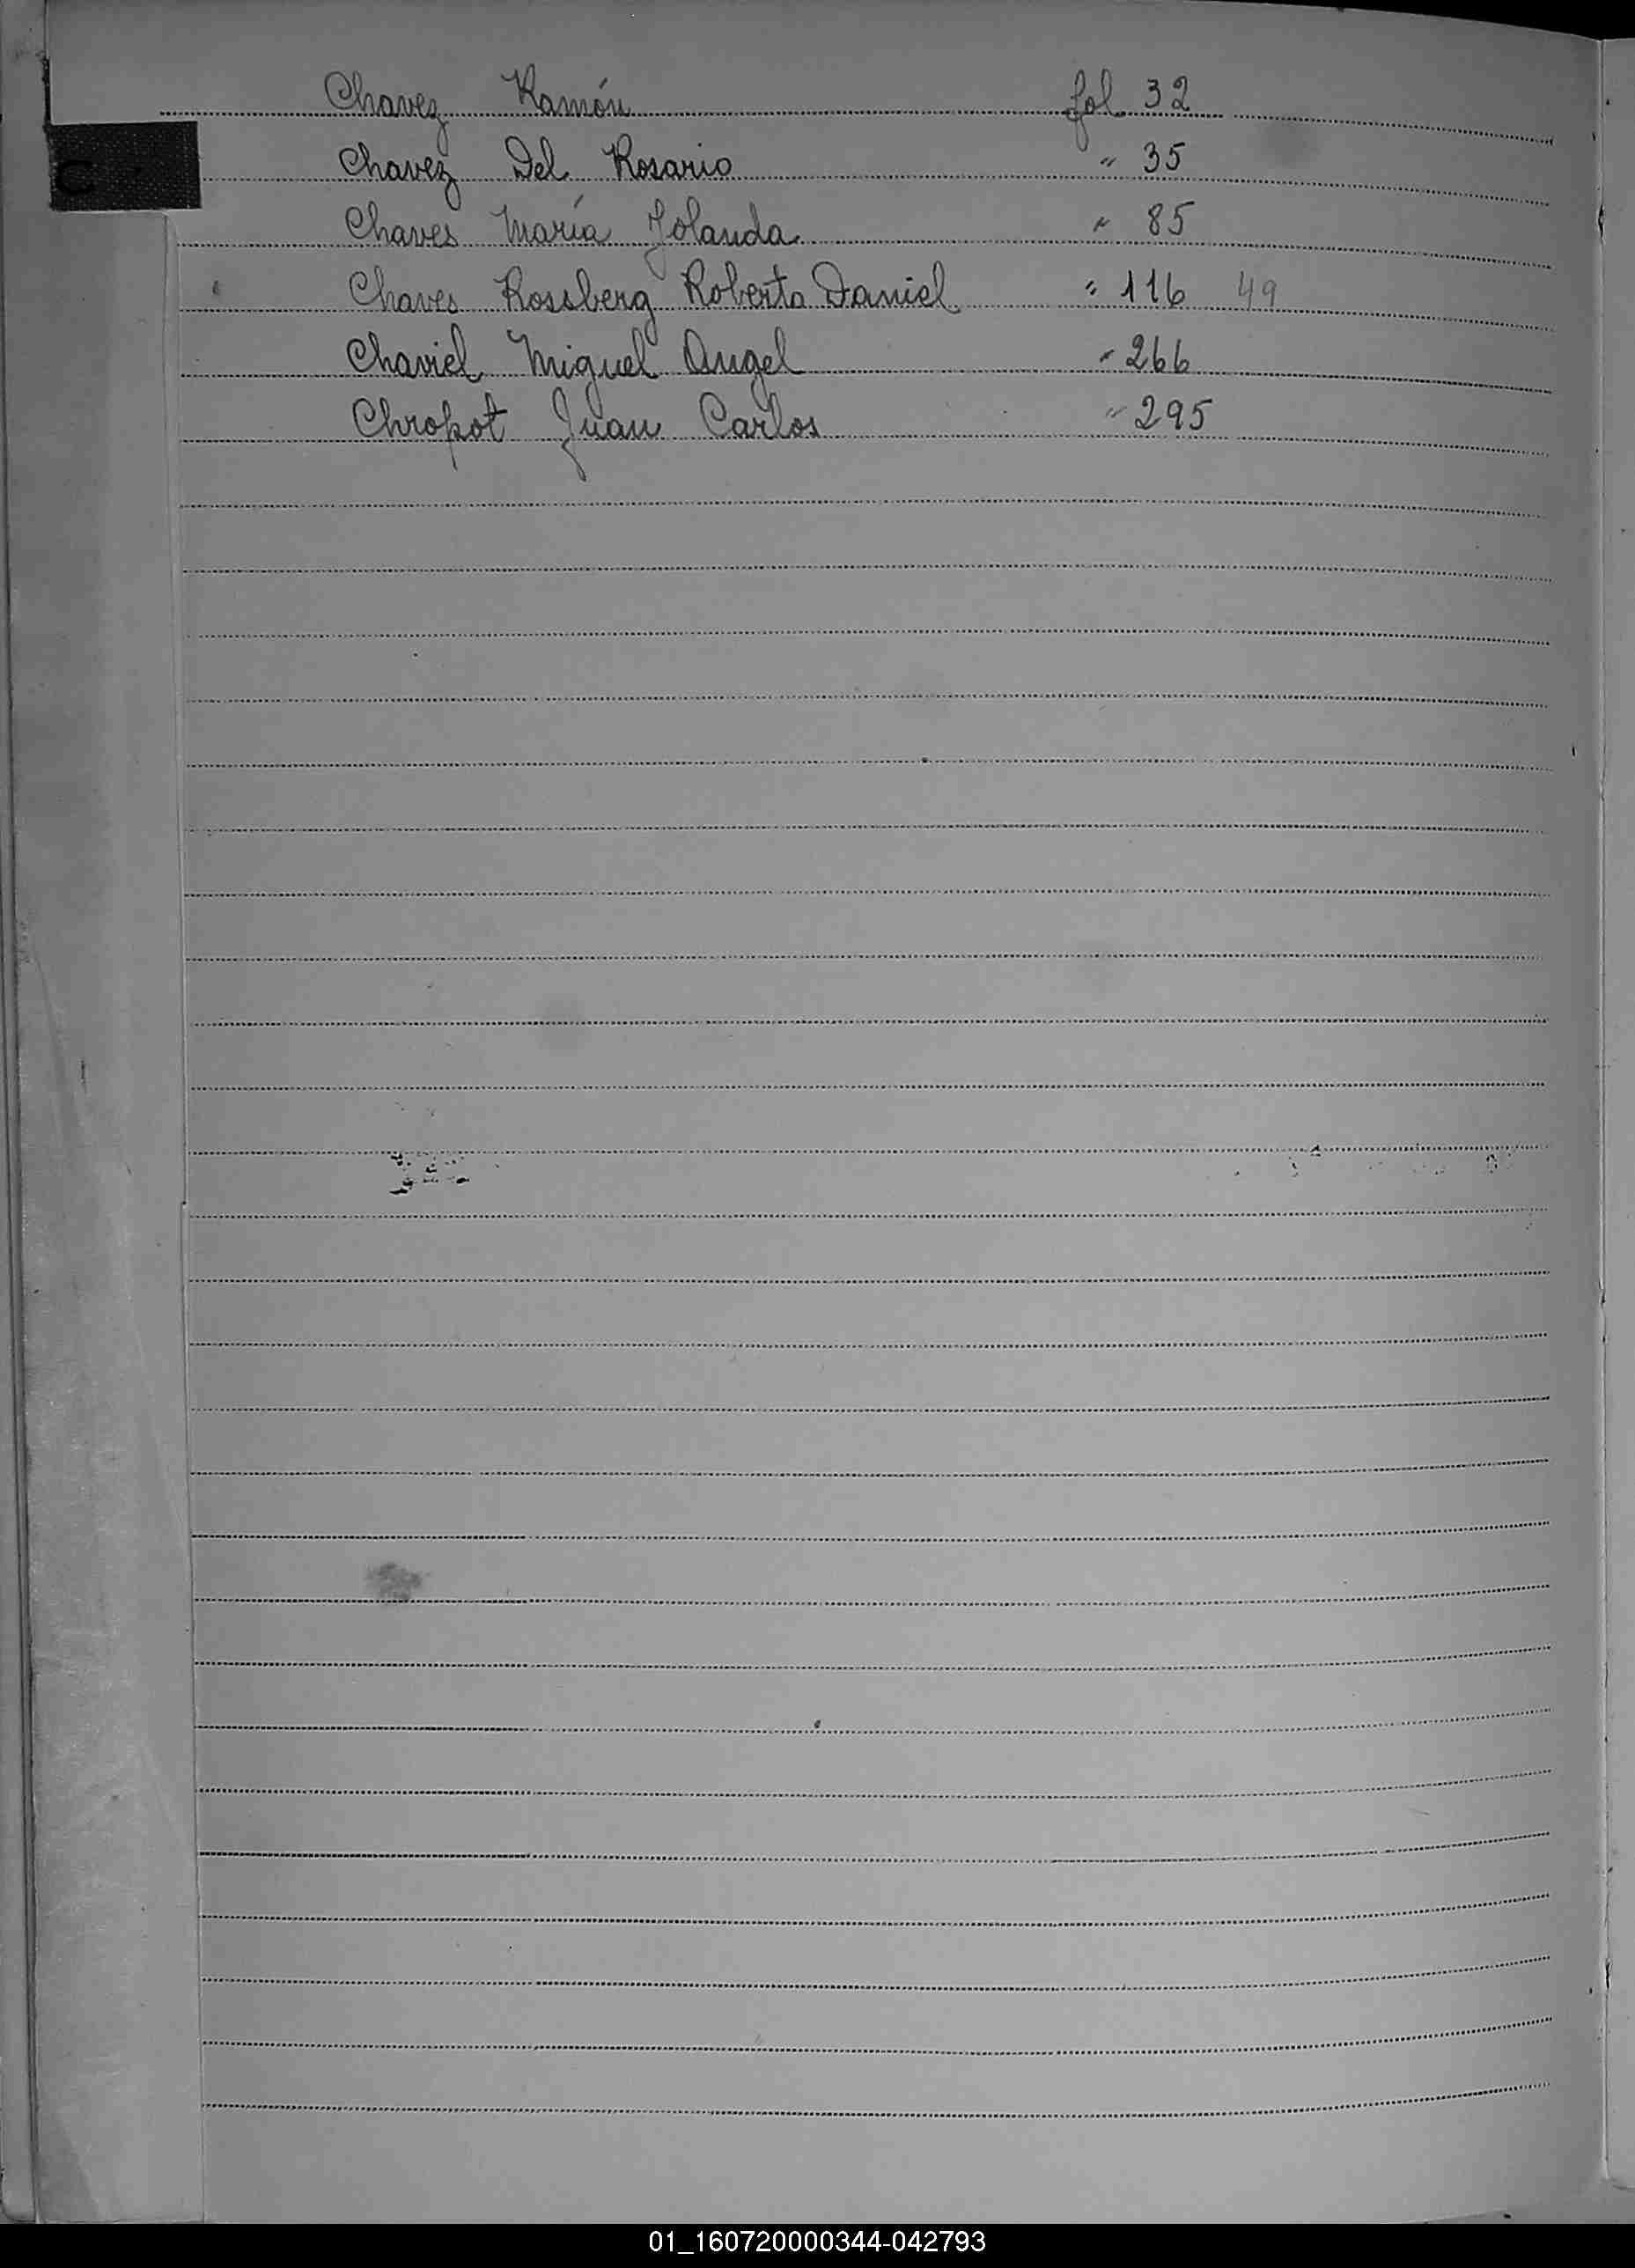 Chavez Ramón fol 32
C
Chavez Del Rosario " 35
Chaves María Yolanda " 85
Chaves Rossberg Roberto Daniel " 116 49
Chaviel Miguel Angel " 266
Chropot Juan Carlos " 295
01_160720000344-042793